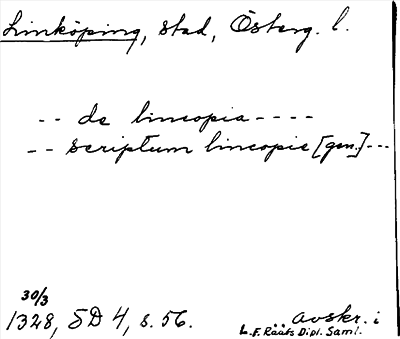 Linköping, stad, Österg. l.
-- de lincopia ----
-- scriptum lincopie [gen.] ---
30/3
1328, SD 4, s. 56. avskr. i
L. F. Rääfs Dipl. Saml.